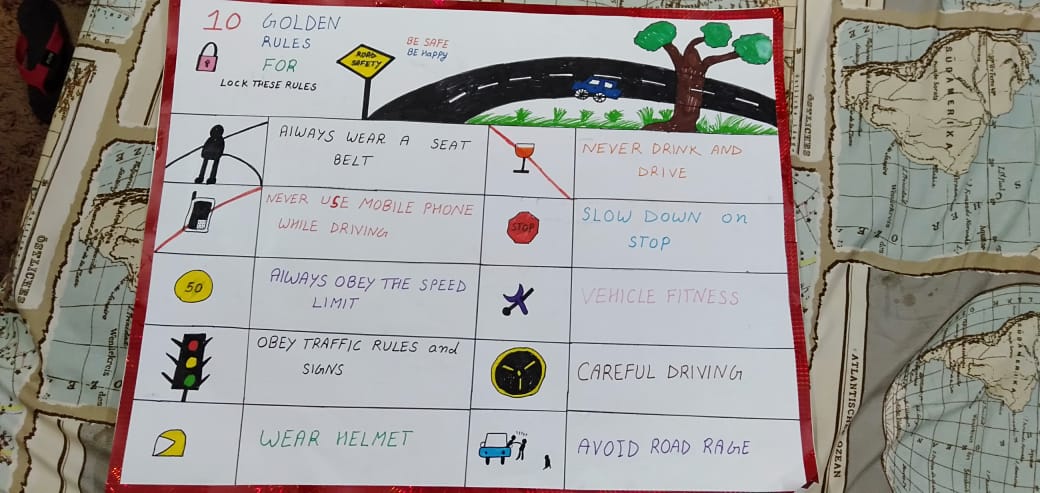 10 GOLDEN
RULES
FOR
LOCK THESE RULES
ROAD
SAFETY
BE SAFE
BE Happy
AlWAYS WEAR A SEAT
BELT
NEVER DRINK AND
DRIVE
NEVER USE MOBILE PHONE
WHILE DRIVING
STOP
SLOW DOWN on
STOP
50
AlWAYS OBEY THE SPEED
LIMIT
VEHICLE FITNESS
OBEY TRAFFIC RULES and
SIGNS
CAREFUL DRIVING
WEAR HELMET
AVOID ROAD RAGE
SÜDAMERIKA